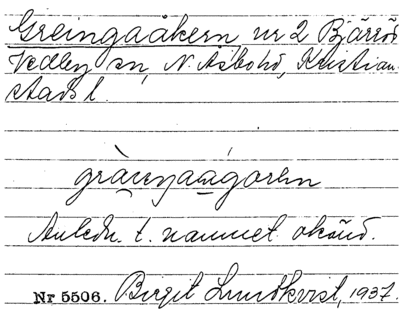 Greingaåkern nr 2 Bjärröd
Vedby sn, N. Åsbohd, Kristian-
stads l.
Anledn. t. namnet okänd.
Nr 5506. Birgit Lundkvist, 1937.